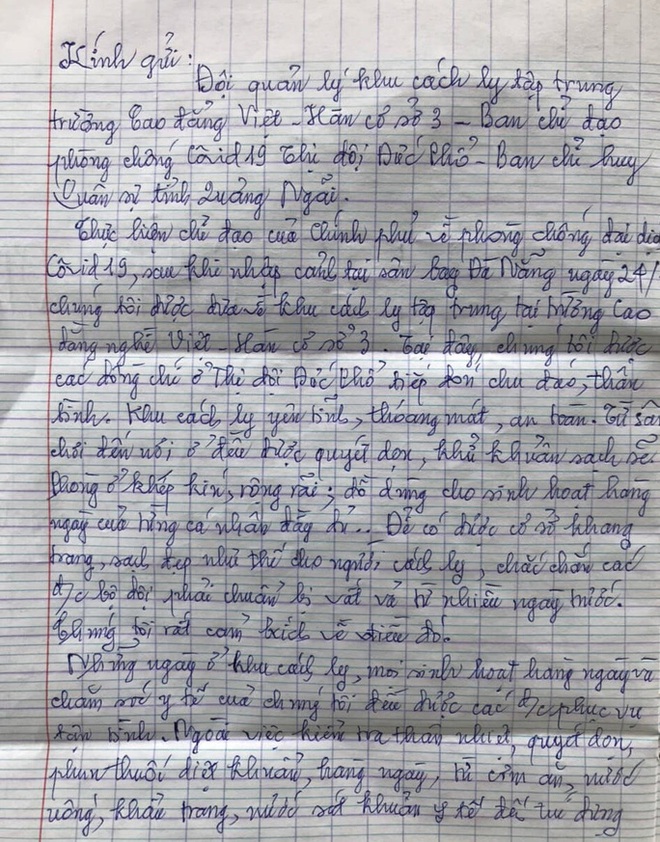 Kính gửi:
Đội quản lý khu cách ly tập trung
trường Cao đẳng Việt - Hàn cơ sở 3 - Ban chỉ đạo
phòng chống Côvid 19 Thị đội Đức Phổ - Ban chỉ huy
Quân sự tỉnh Quảng Ngãi.
Thực hiện chỉ đạo của Chính phủ về phòng chống đại dịc
Côvid 19, sau khi nhập cảnh tại sân bay Đà Nẵng ngày 24/
chúng tôi được đưa về khu cách ly tập trung tại trường Cao
đẳng nghề Việt - Hàn cơ sở 3. Tại đây, chúng tôi được
các đồng chí ở Thị đội Đức Phổ tiếp đón chu đáo, thân
tình. Khu cách ly yên tĩnh, thoáng mát, an toàn. Từ sân
chơi đến nơi ở đều được quyét dọn, khử khuẩn sạch sẽ
Phòng ở khép kín, rộng rãi; đồ dùng cho sinh hoạt hàng
ngày của từng cá nhân đầy đủ.. Để có được cơ sở khang
trang, sạch đẹp như thế cho người cách ly, chắc chắn các
đ/c bộ đội phải chuẩn bị vất vả từ nhiều ngày trước.
Chúng tôi rất cảm kích về điều đó.
Những ngày ở khu cách ly, mọi sinh hoạt hàng ngày và
chăm sóc y tế của chúng tôi đều được các đ/c phục vụ
tận tình. Ngoài việc kiểm tra thân nhiệt, quyét dọn,
phun thuốc diệt khuẩn, hàng ngày, từ cơm ăn, nước
uống, khẩu trang, nước sát khuẩn y tế đến dùng